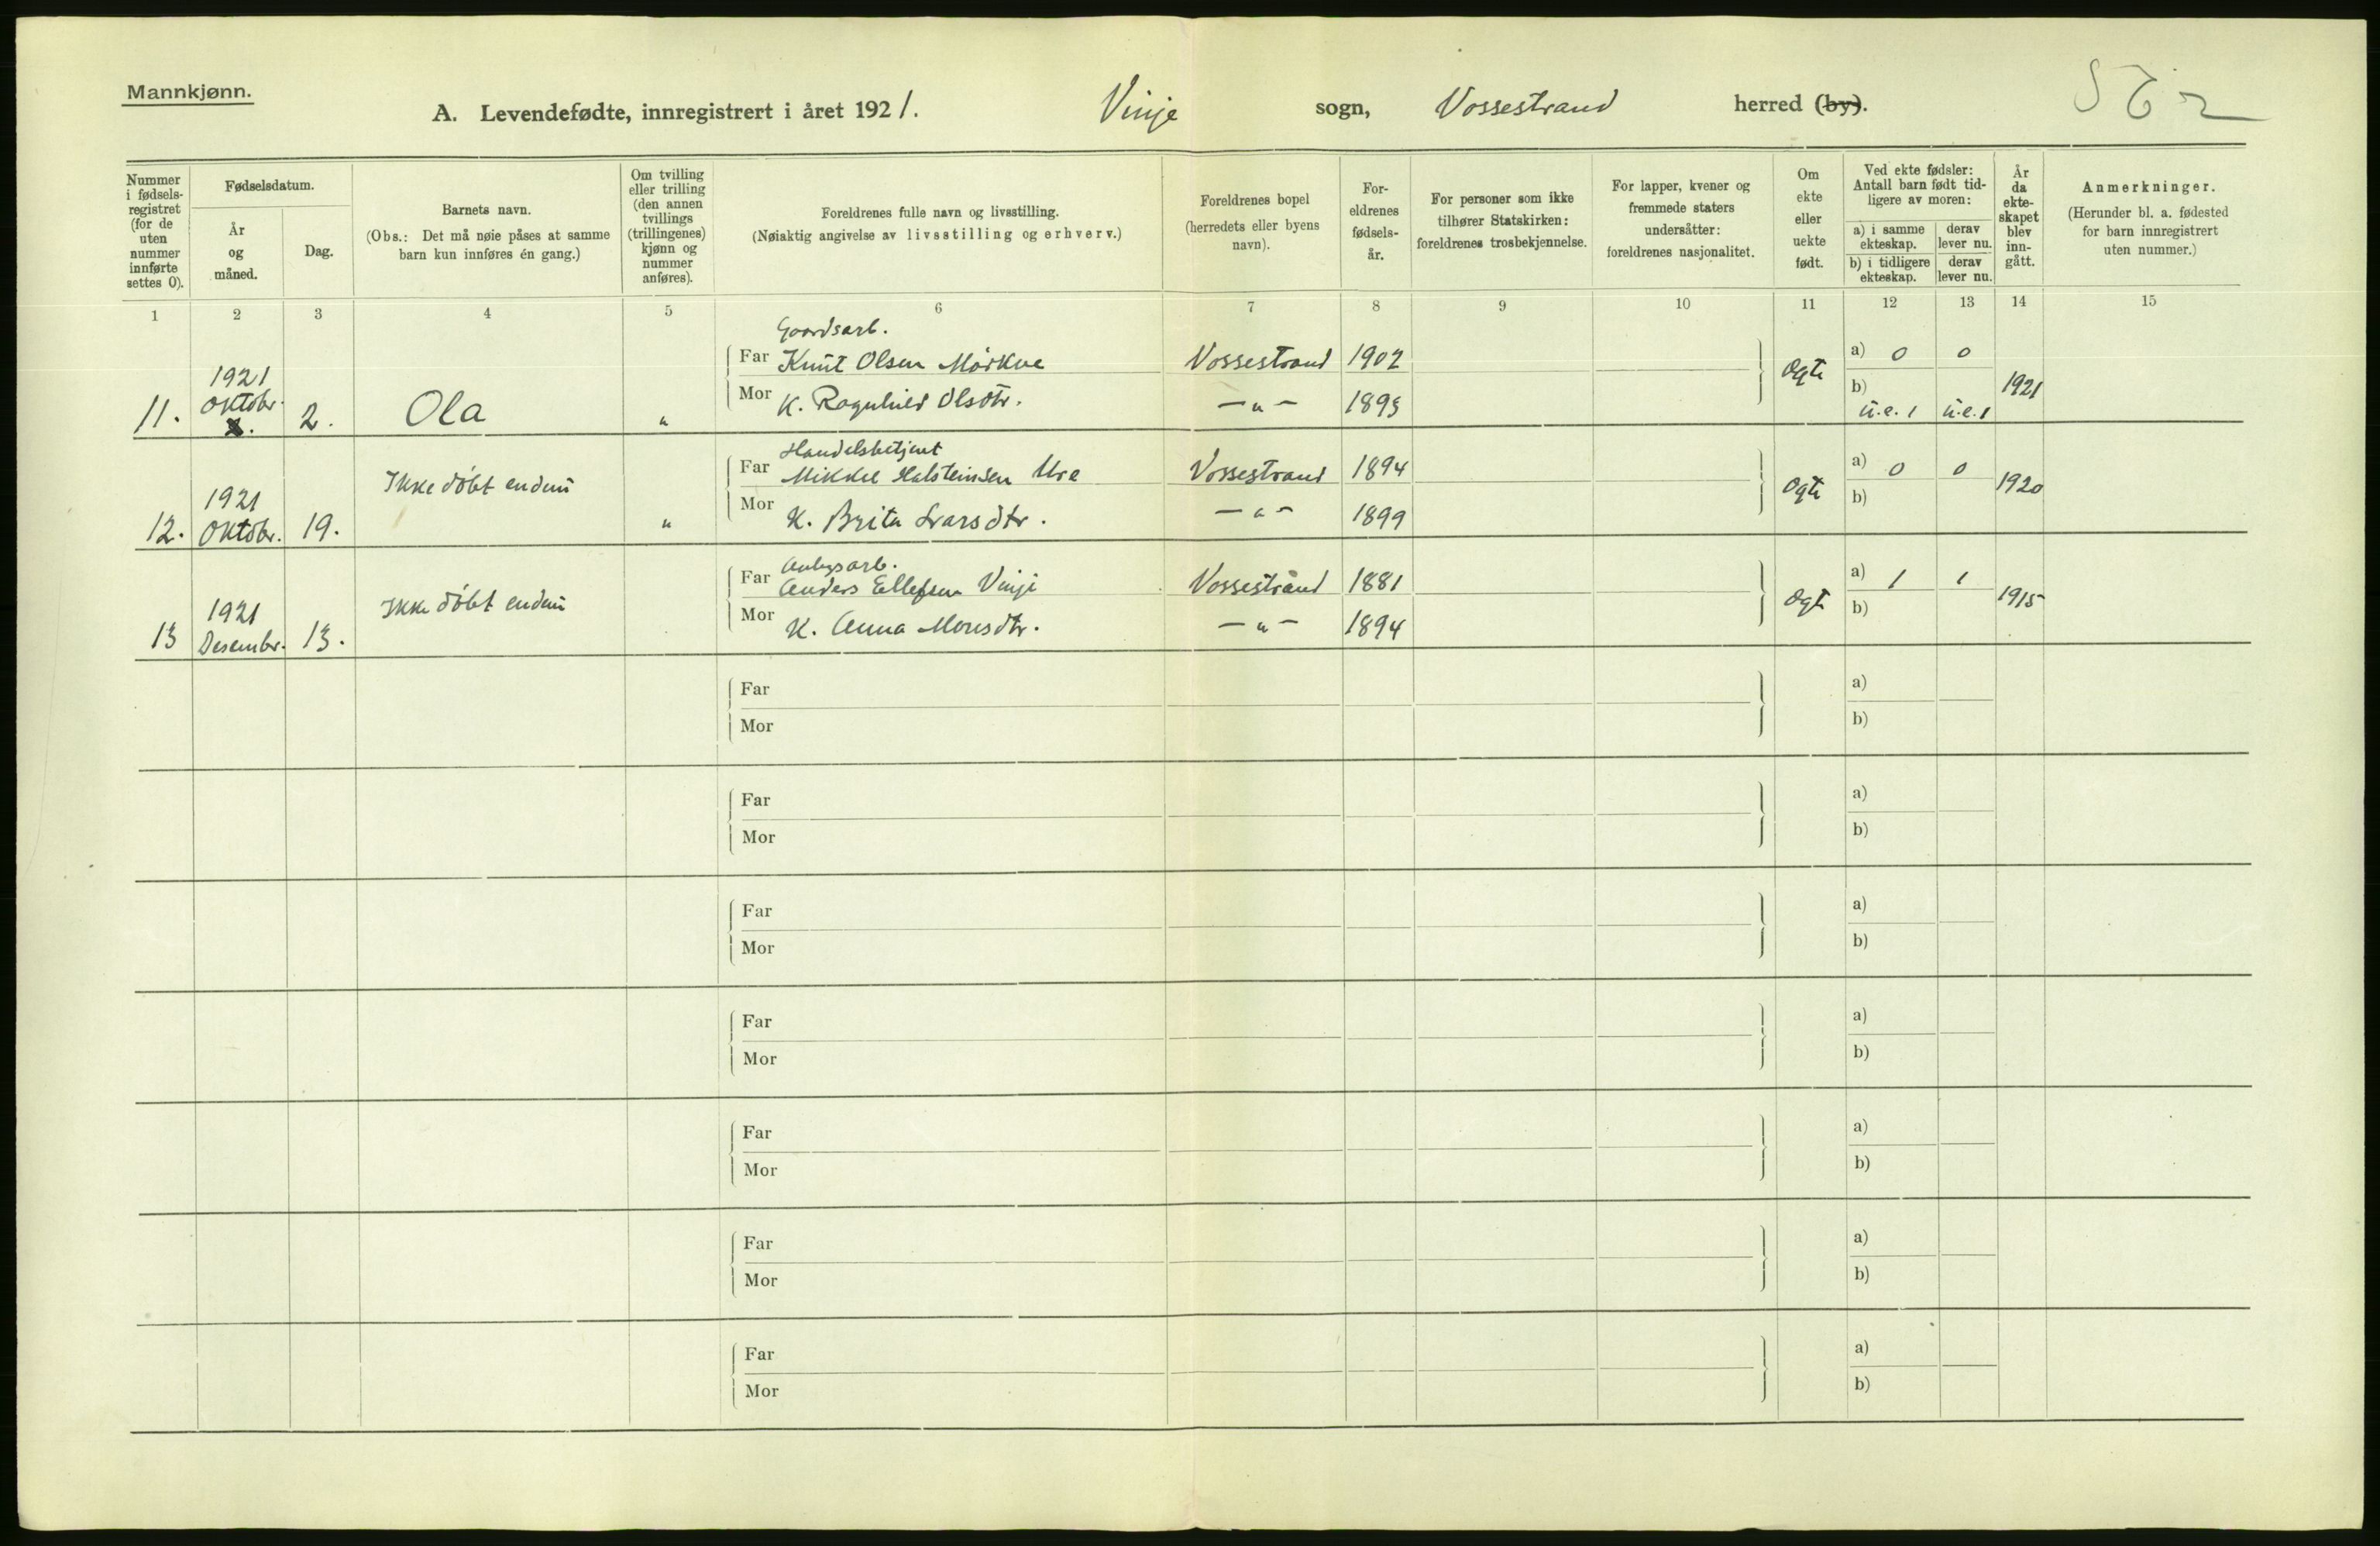 Mannkjønn.
A. Levendefødte, innregistrert i året 1921. Vinje sogn, Vossestrand herred (by).
Nummer i fødsels-registret (for de uten nummer innførte settes 0).
Fødselsdatum.
År og måned.
Dag.
Barnets navn.
(Obs.: Det må nøie påses at samme barn kun innføres én gang.)
Om tvilling eller trilling (den annen tvillings (trillingenes) kjønn og nummer anføres).
Foreldrenes fulle navn og livsstilling.
(Nøiaktig angivelse av livsstilling og erhverv.)
Foreldrenes bopel (herredets eller byens navn).
For-eldrenes fødsels-år.
For personer som ikke tilhører Statskirken: foreldrenes trosbekjennelse.
For lapper, kvener og fremmede staters undersåtter: foreldrenes nasjonalitet.
Om ekte eller uekte født.
Ved ekte fødsler: Antall barn født tid-ligere av moren:
a) i samme ekteskap.
derav lever nu.
b) i tidligere ekteskap.
derav lever nu.
År da ekte-skapet blev inn-gått.
Anmerkninger.
(Herunder bl. a. fødested for barn innregistrert uten nummer.)
1 2 3 4 5 6 7 8 9 10 11 12 13 14 15
Gaardsarb.
Far Knut Olsen Mörkve Vossestrand 1902 a) 0 0
11. 1921 Oktobr. 2. Ola " Mor K. Ragnhild Olsdtr. —"— 1893 Ogte b) u.e. 1 u.e. 1 1921
Handelsbetjent
Far Mikkel Halsteinsen Ure Vossestrand 1894 a) 0 0
12. 1921 Oktobr. 19. Ikke döbt endnu " Mor K. Brita Larsdtr. —"— 1899 Ogte b) 1920
Far Anders Ellefsen Vinje Vossestrand 1881 a) 1 1
13 1921 Desembr. 13. Ikke döbt endnu Mor K. Anna Monsdtr. —"— 1894 Ogte b) 1915
Far a)
Mor b)
Far a)
Mor b)
Far a)
Mor b)
Far a)
Mor b)
Far a)
Mor b)
Far a)
Mor b)
Far a)
Mor b)